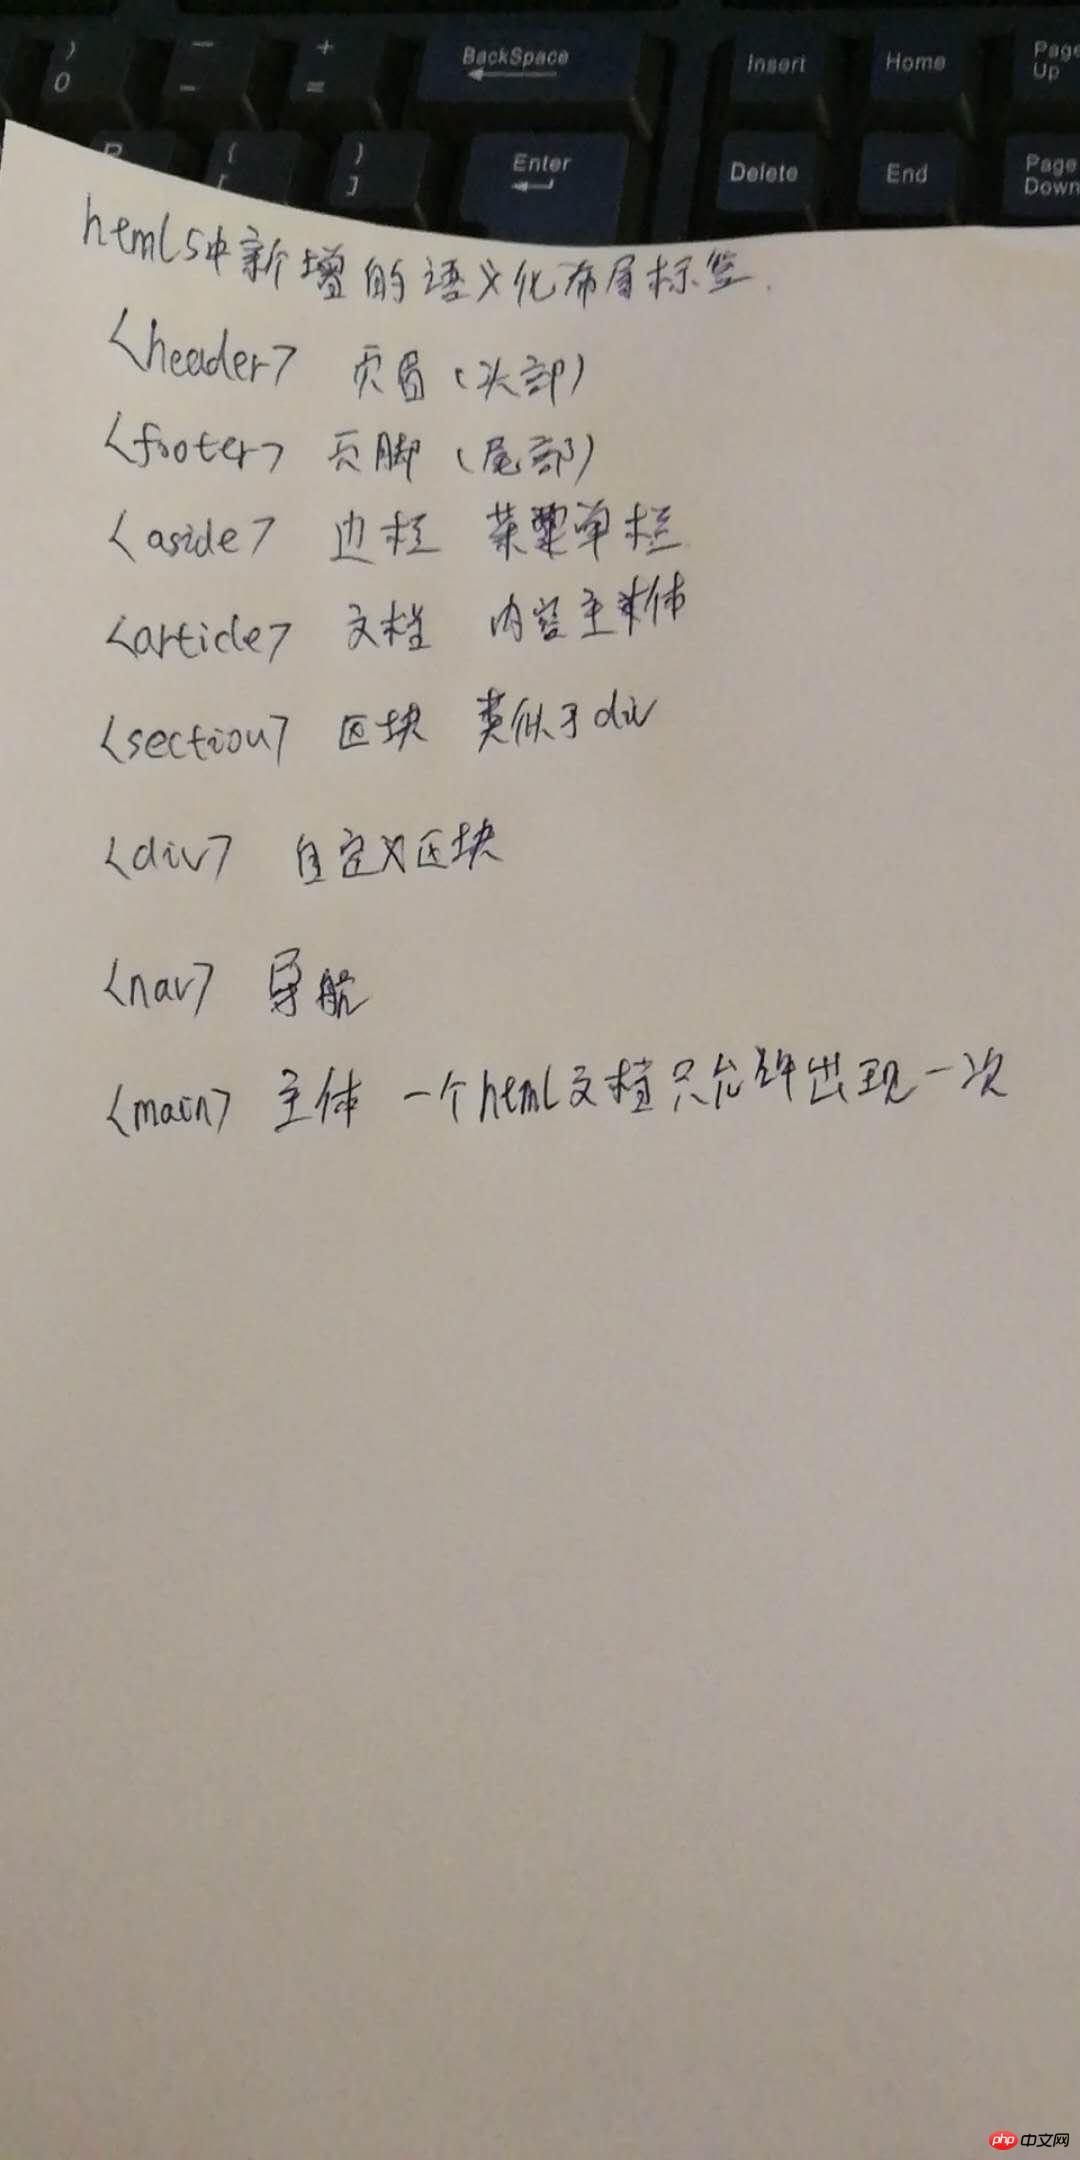 ) — + BackSpace Insert Home Page Up
0 - =
{ } Enter Delete End Page Down
[ ]
html5中新增的语义化布局标签.
<header> 页眉(头部)
<footer> 页脚(尾部)
<aside> 边栏 菜单栏
<article> 文档 内容主体
<section> 区块 类似于div
<div> 自定义区块
<nav> 导航
<main> 主体 一个html文档只允许出现一次
php 中文网